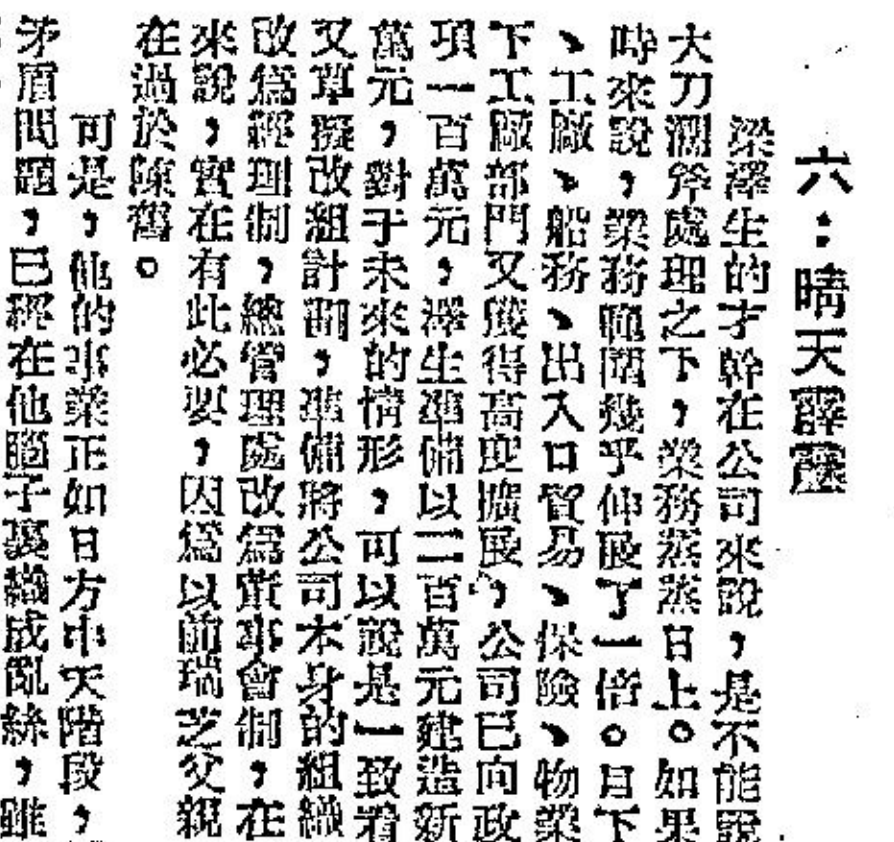 六：晴天霹靂
梁澤生的才幹在公司來說，是不能說
大刀濶斧處理之下，業務蒸蒸日上。如果
時來說，業務範圍幾乎伸展了一倍。目下
、工廠、船務、出入口貿易、保險、物業
下工廠部門又獲得高度擴展，公司已向政
項一百萬元，澤生準備以二百萬元建造新
萬元，對于未來的情形，可以說是一致看
又草擬改組計劃，準備將公司本身的組織
改爲經理制，總管理處改爲董事會制，在
來說，實在有此必要，因爲以前瑞芝父親
在過於陳舊。
可是，他的事業正如日方中天階段，
矛盾問題，已經在他腦子裏織成亂絲，雖